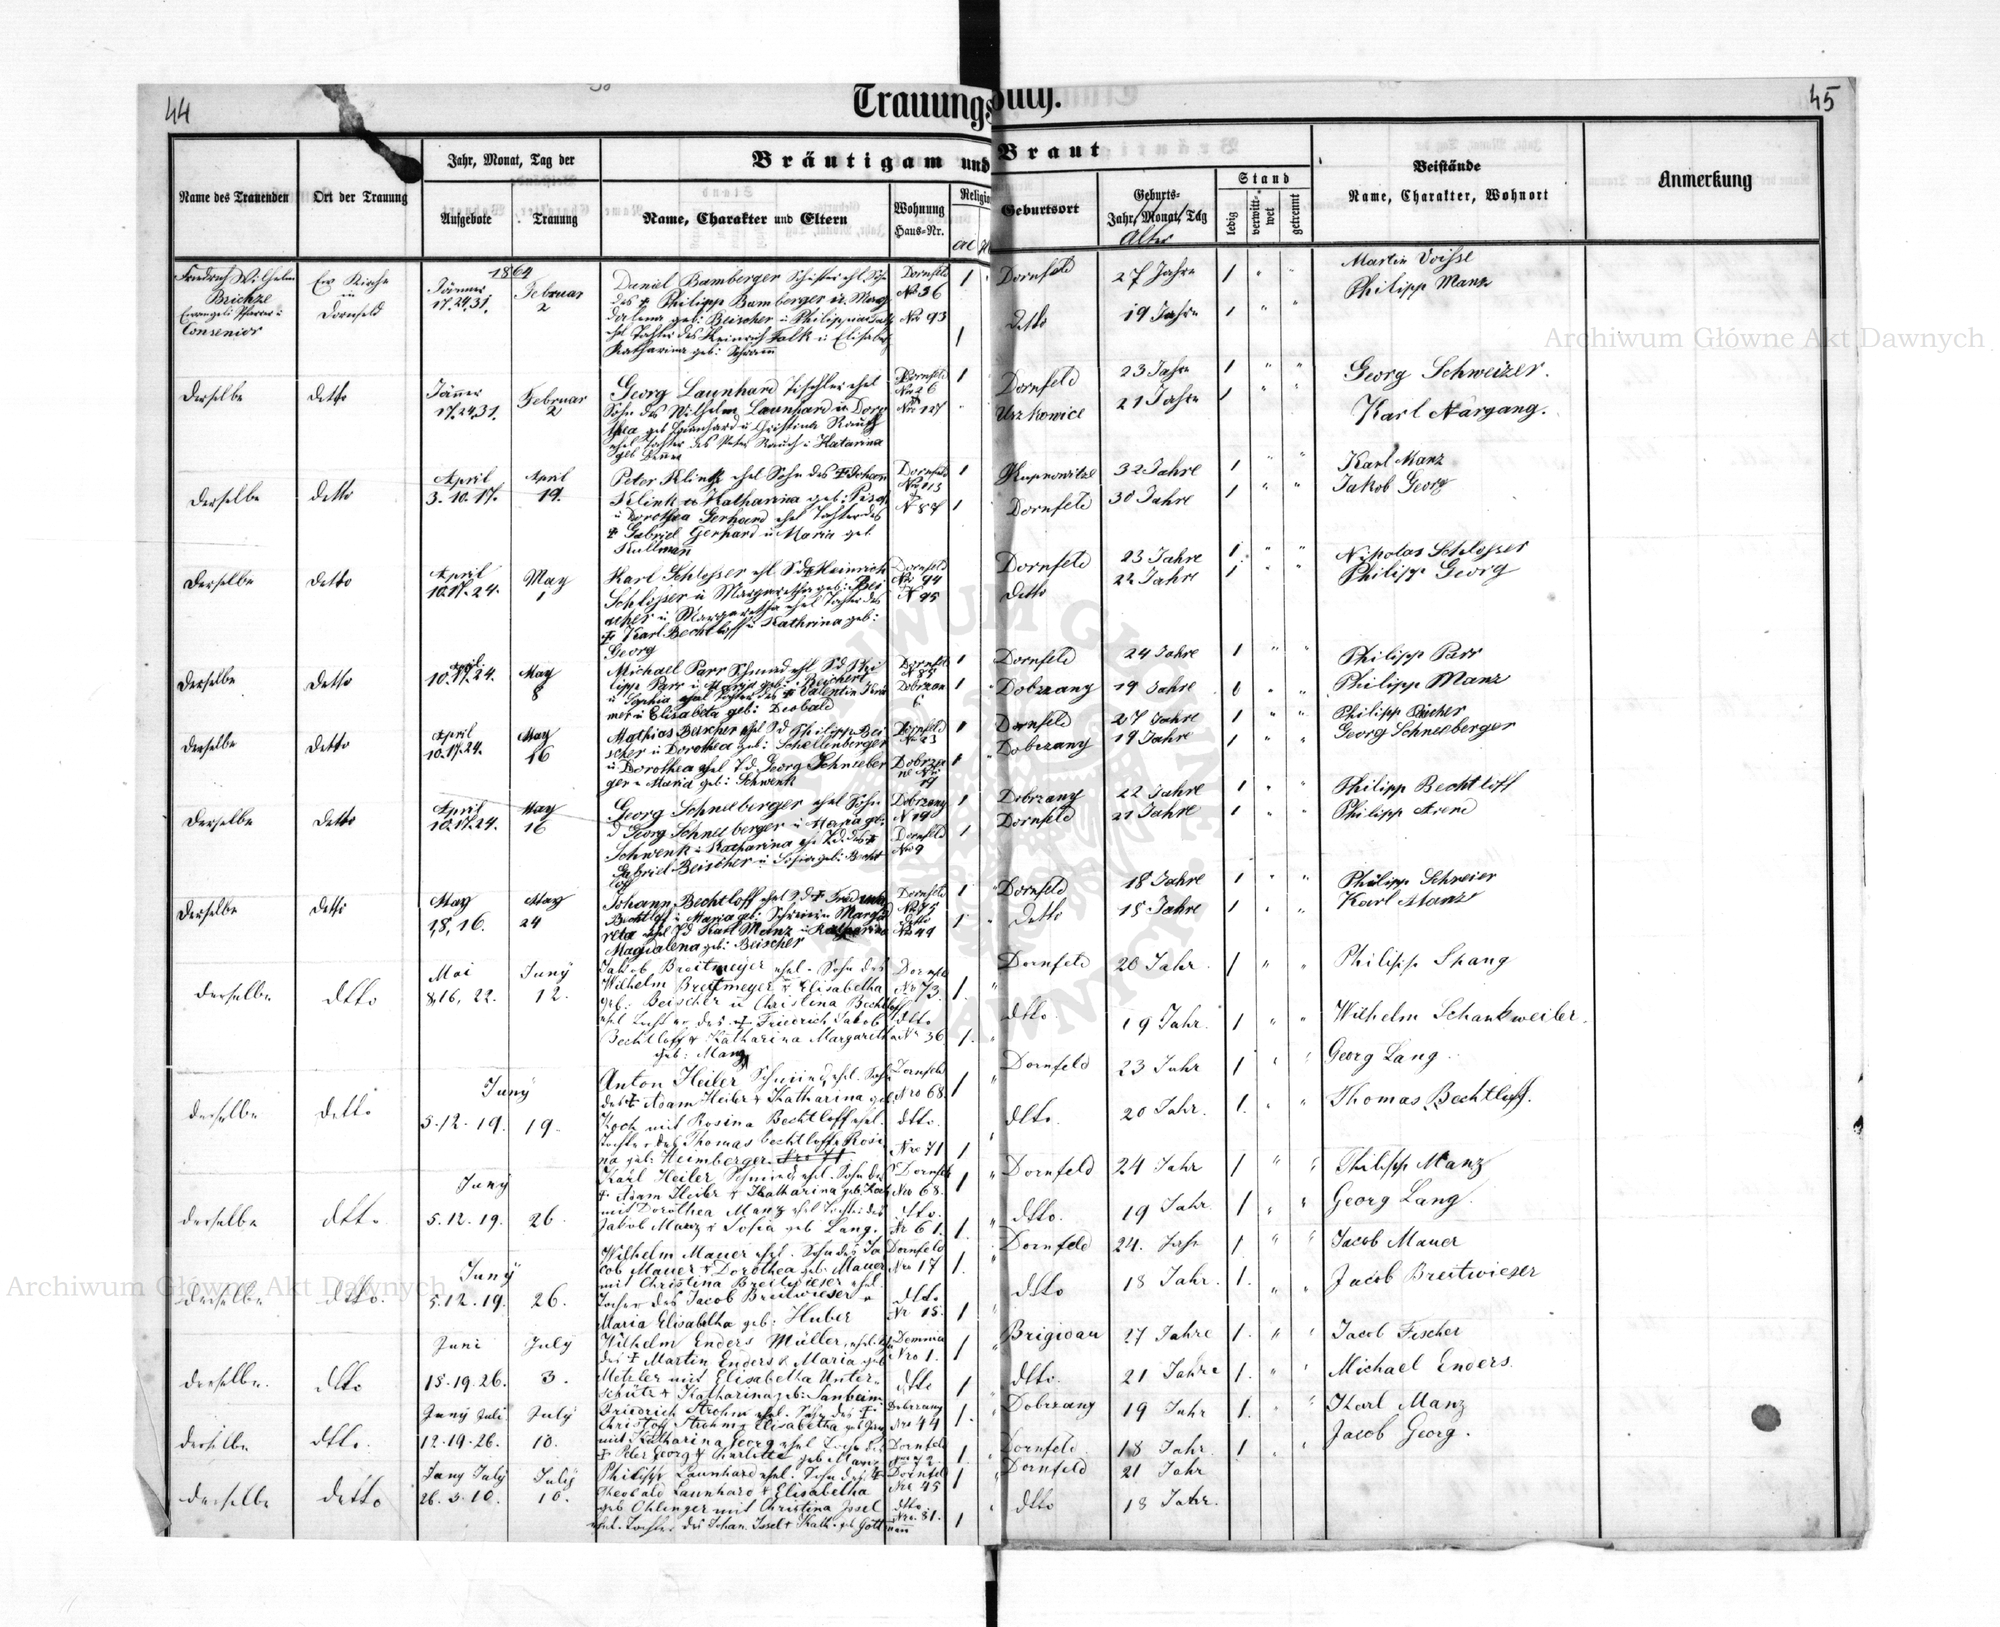 44
45
Trauungs buch.
Name des Trauenden
Ort der Trauung
Jahr, Monat, Tag der
Aufgebote
Trauung
Bräutigam und Braut
Name, Charakter und Eltern
Wohnung
Haus-Nr.
Religion
Geburtsort
Geburts-
Jahr, Monat, Tag
Alter
Stand
ledig
verwittwet
getrennt
Beistände
Name, Charakter, Wohnort
Anmerkung
1864
Friedrich Wilhelm
Brichze
Evangeli Pfarrer u
Consenior
Ev Kirche
in
Dornfeld
Jänner
17.24.31.
Februar
2
Daniel Bamberger Sohn
des † Philipp Bamberger u. Mag
dalena geb: Beischer u Philippina
ehl Tochter des Heinrich Falk u Elisabeth
Katharina geb: Schramm
Dornfeld
No 36
No 93
Dornfeld 27 Jahre 1
detto 19 Jahre 1
Martin Voissl
Philipp Manz
Derselbe detto
Jänner
17.24.31.
Februar
2
Georg Launhard Tischler ehel
Sohn des Wilhelm Launhard u Doro
thea geb Launhard u Christina Rauch
ehel Tochter des Peter Rauch u Katarina
geb
Dornfeld
No 26
No 127
Dornfeld 23 Jahre 1
Uszkowice 21 Jahre 1
Georg Schweizer.
Karl Nargang.
Derselbe detto
April
3. 10. 17.
April
19.
Peter Klink ehel Sohn des † Johann
Klink u Katharina geb:
u Dorothea Gerhard ehel Tochter des
† Gabriel Gerhard u Maria geb
Kullmann
Dornfeld
No 113
N 87
Kupnowitze 32 Jahre 1
Dornfeld 30 Jahre 1
Karl Manz
Jakob Georg
Derselbe detto
April
10.17.24.
May
1
Karl Schlosser ehl S d † Heinrich
Schlosser u Margaretha geb: Bei
scher u Margaretha ehel Tochter des
† Karl Bechtloff u Kathrina geb:
Georg
Dornfeld
No 94
N 95
Dornfeld 23 Jahre 1
Detto 22 Jahre 1
Nikolas Schlosser
Philipp Georg
Derselbe Detto
April
10.17.24.
May
8
Michael Parr Schmid ehl S d Phi
lipp Parr u Maria geb: Beichert
u Sophia ehel Tochter des † Valentin Krä
mer u Elisabeta geb: Diobald
Dornfeld
N 85
Dobrzan
6
Dornfeld 24 Jahre 1
Dobrzany 19 Jahre 1
Philipp Parr
Philipp Manz
Derselbe Detto
April
10.17.24.
May
16
Mathias Beischer ehel S d Philipp Bei
scher u Dorothea geb: Schellenberger
u Dorothea ehel T d. Georg Schneeber
ger u Maria geb: Schwenk
Dornfeld
No 23
Dobrza
ne No
19
Dornfeld 27 Jahre 1
Dobrzany 19 Jahre 1
Philipp Bischer
Georg Schneeberger
Derselbe Detto
April
10.17.24.
May
16
Georg Schneeberger ehel Sohn
d Georg Schneeberger u Maria ge:
Schwenk u Katharina ehe T. d. des †
Gabriel Beischer u Sofia geb: Becht
loff
Dobrzany
N 19
Dornfeld
No 9
Dobrzany 22 Jahre 1
Dornfeld 21 Jahre 1
Philipp Bechtloff
Philipp Arend
Derselbe Detto
May
1,8,16.
May
24
Johann Bechtloff ehel S d † Friedrich
Bechtloff u Maria geb: Schreier u Marga
reta ehel T d Karl Manz u Katharina
Magdalena geb: Beischer
Dornfeld
No 75
Detto
No 49
Dornfeld 18 Jahre 1
Detto 18 Jahre 1
Philipp Schreier
Karl Manz
derselbe dtto
Mai
8,16, 22.
Juny
12.
Jakob Breitmeyer ehel. Sohn des
Wilhelm Breitmeyer & Elisabetha
geb: Beischer u Christina Bechtloff
ehel Tochter des † Friedrich Jakob
Bechtloff & Katharina Margaretha
geb: Manz
Dornfeld
No 73.
dtto
No 36
Dornfeld 20 Jahr. 1
dtto 19 Jahr. 1
Philipp Spang
Wilhelm Schankweiler.
derselbe detto
Juny
5.12.19. 19.
Anton Heiler Schmied ehel. Sohn
des † Adam Heiler & Katharina geb
Koch mit Rosina Bechtloff ehel.
Tochter des Thomas Bechtloff & Rosi
na geb: Heimberger.
Dornfeld
Nro 68.
dtto.
Nro 71
Dornfeld 23 Jahr 1
dtto. 20 Jahr. 1.
Georg Lang
Thomas Bechtloff.
derselbe dtto
Juny
5.12.19. 26.
Karl Heiler Schmied ehel. Sohn des
† Adam Heiler & Katharina geb. Koch
mit Dorothea Manz ehel Tochter des
Jakob Manz & Sofia geb Lang.
Dornfeld
Nro 68.
dtto.
Nr 61.
Dornfeld 24 Jahr 1
dtto. 19 Jahr. 1
Philipp Manz
Georg Lang.
derselbe dtto.
Juny
5.12.19. 26.
Wilhelm Mauer ehel. Sohn des Ja
cob Mauer & Dorothea geb Mauer
mit Christina Breitwieser ehel
Tochter des Jacob Breitwieser &
Maria Elisabetha geb: Huber
Dornfeld
Nro 17
dtto.
Nr 15.
Dornfeld 24. Jahr 1
dtto 18 Jahr. 1.
Jacob Mauer
Jacob Breitwieser
derselbe. dtto
Juni
15.19.26.
July
3.
Wilhelm Enders Müller, ehel. Sohn
des † Martin Enders & Maria geb
Metzler mit Elisabetha Unter-
schütz & Katharina geb: Sanheim
Demnia
Nro 1.
dtto
Brigidau 27 Jahre 1.
dtto. 21 Jahre 1.
Jacob Fischer
Michael Enders.
derselbe dtto.
Juny Juli
12.19.26.
July
10.
Friedrich Strohm ehel. Sohn des †
Christoff Strohm & Elisabetha geb
mit Katharina Georg ehel Tochter des
† Peter Georg & Charlotte geb Manz
Dobrzany
Nro 44
Dornfeld
Dobrzany 19 Jahr 1.
Dornfeld 18 Jahr. 1
Karl Manz
Jacob Georg.
derselbe detto
Juny July
26. 3. 10.
July
10.
Philipp Launhard ehel. Sohn des †
Theobald Launhard & Elisabetha
geb Ohlinger mit Christina Josel
ehel. Tochter des Johann Josel & Kath. geb Gottmann
Dornfeld
Nro 45
dtto
Nro. 81.
Dornfeld 21 Jahr
dtto 18 Jahr.
Archiwum Główne Akt Dawnych
Archiwum Główne Akt Dawnych